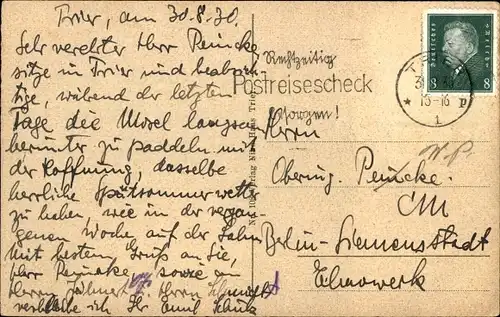 Trier, am 30.8.30.
Sehr verehrter Herr Peincke
sitze in Trier und beabsich-
tige, während der letzten
Tage die Mosel langsam
herunter zu paddeln mit
der Hoffnung, dasselbe
herrliche Spätsommerwetter
zu haben, wie in der vergan-
genen Woche auf der Lahn
Mit bestem Gruß an Sie,
Herr Peincke, sowie an
Herrn Herrn Schmidt
verbleibe ich Ihr Emil Schulz
Rechtzeitig
Postreisescheck
besorgen!
TRIER
15-16
1
Deutsches Reich
8 8
Herrn
Obering. Peincke.
W.P.
Berlin-Siemensstadt
Elmowerk